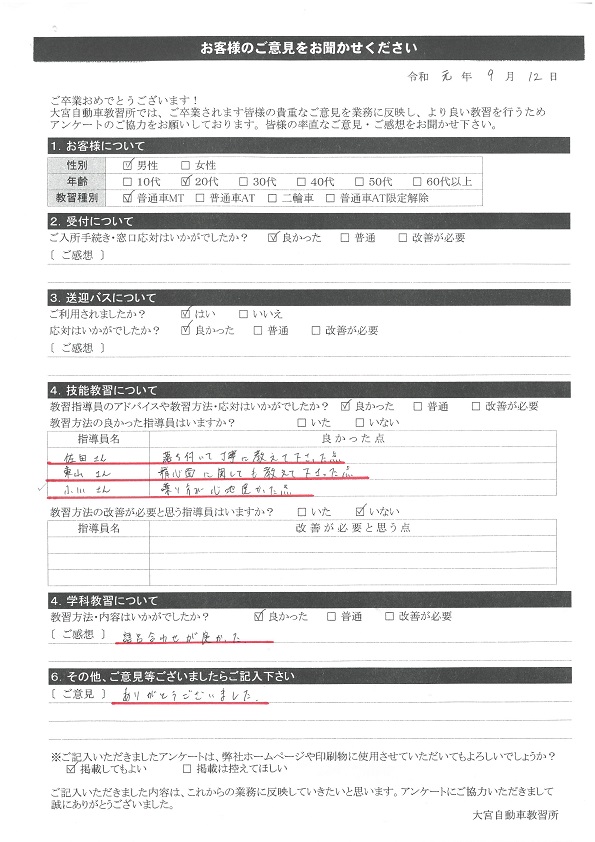 お客様のご意見をお聞かせください
令和 元 年 9 月 12 日
ご卒業おめでとうございます！
大宮自動車教習所では、ご卒業されます皆様の貴重なご意見を業務に反映し、より良い教習を行うため
アンケートのご協力をお願いしております。皆様の率直なご意見・ご感想をお聞かせ下さい。
1. お客様について
性別 ☑ 男性 □ 女性
年齢 □ 10代 ☑ 20代 □ 30代 □ 40代 □ 50代 □ 60代以上
教習種別 ☑ 普通車MT □ 普通車AT □ 二輪車 □ 普通車AT限定解除
2. 受付について
ご入所手続き・窓口応対はいかがでしたか？ ☑ 良かった □ 普通 □ 改善が必要
〔 ご感想 〕
3. 送迎バスについて
ご利用されましたか？ ☑ はい □ いいえ
応対はいかがでしたか？ ☑ 良かった □ 普通 □ 改善が必要
〔 ご感想 〕
4. 技能教習について
教習指導員のアドバイスや教習方法・応対はいかがでしたか？ ☑ 良かった □ 普通 □ 改善が必要
教習方法の良かった指導員はいますか？ □ いた □ いない
指導員名 良かった点
佐田さん 落ち付いて丁寧に教えて下さった点
東山さん 精心面に関しても教えて下さった点
小川さん 乗り方が心地良かった点
教習方法の改善が必要と思う指導員はいますか？ □ いた ☑ いない
指導員名 改善が必要と思う点
4. 学科教習について
教習方法・内容はいかがでしたか？ ☑ 良かった □ 普通 □ 改善が必要
〔 ご感想 〕 語呂合わせが良かった
6. その他、ご意見等ございましたらご記入下さい
〔 ご意見 〕 ありがとうございました.
※ご記入いただきましたアンケートは、弊社ホームページや印刷物に使用させていただいてもよろしいでしょうか？
☑ 掲載してもよい □ 掲載は控えてほしい
ご記入いただきました内容は、これからの業務に反映していきたいと思います。アンケートにご協力いただきまして
誠にありがとうございました。
大宮自動車教習所